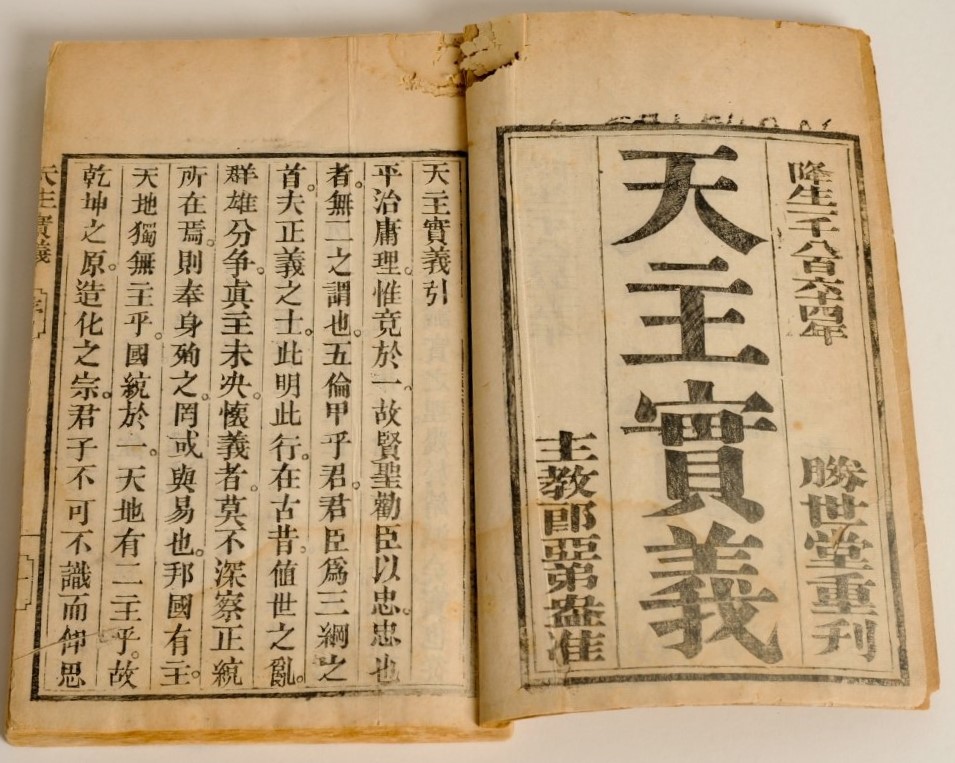 降生一千八百六十四年
勝世堂重刊
天主實義
主教郎亞弟盎准
天主實義引
平治庸理。惟竟於一。故賢聖勸臣以忠。忠也
者。無二之謂也。五倫甲乎君。君臣爲三綱之
首。夫正義之士。此明此行。在古昔。値世之亂。
群雄分争。真主未决。懷義者。莫不深察正統
所在焉。則奉身殉之。罔或與易也。邦國有主。
天地獨無主乎。國統於一。天地有二主乎。故
乾坤之原。造化之宗。君子不可不識而仰思
天主實義